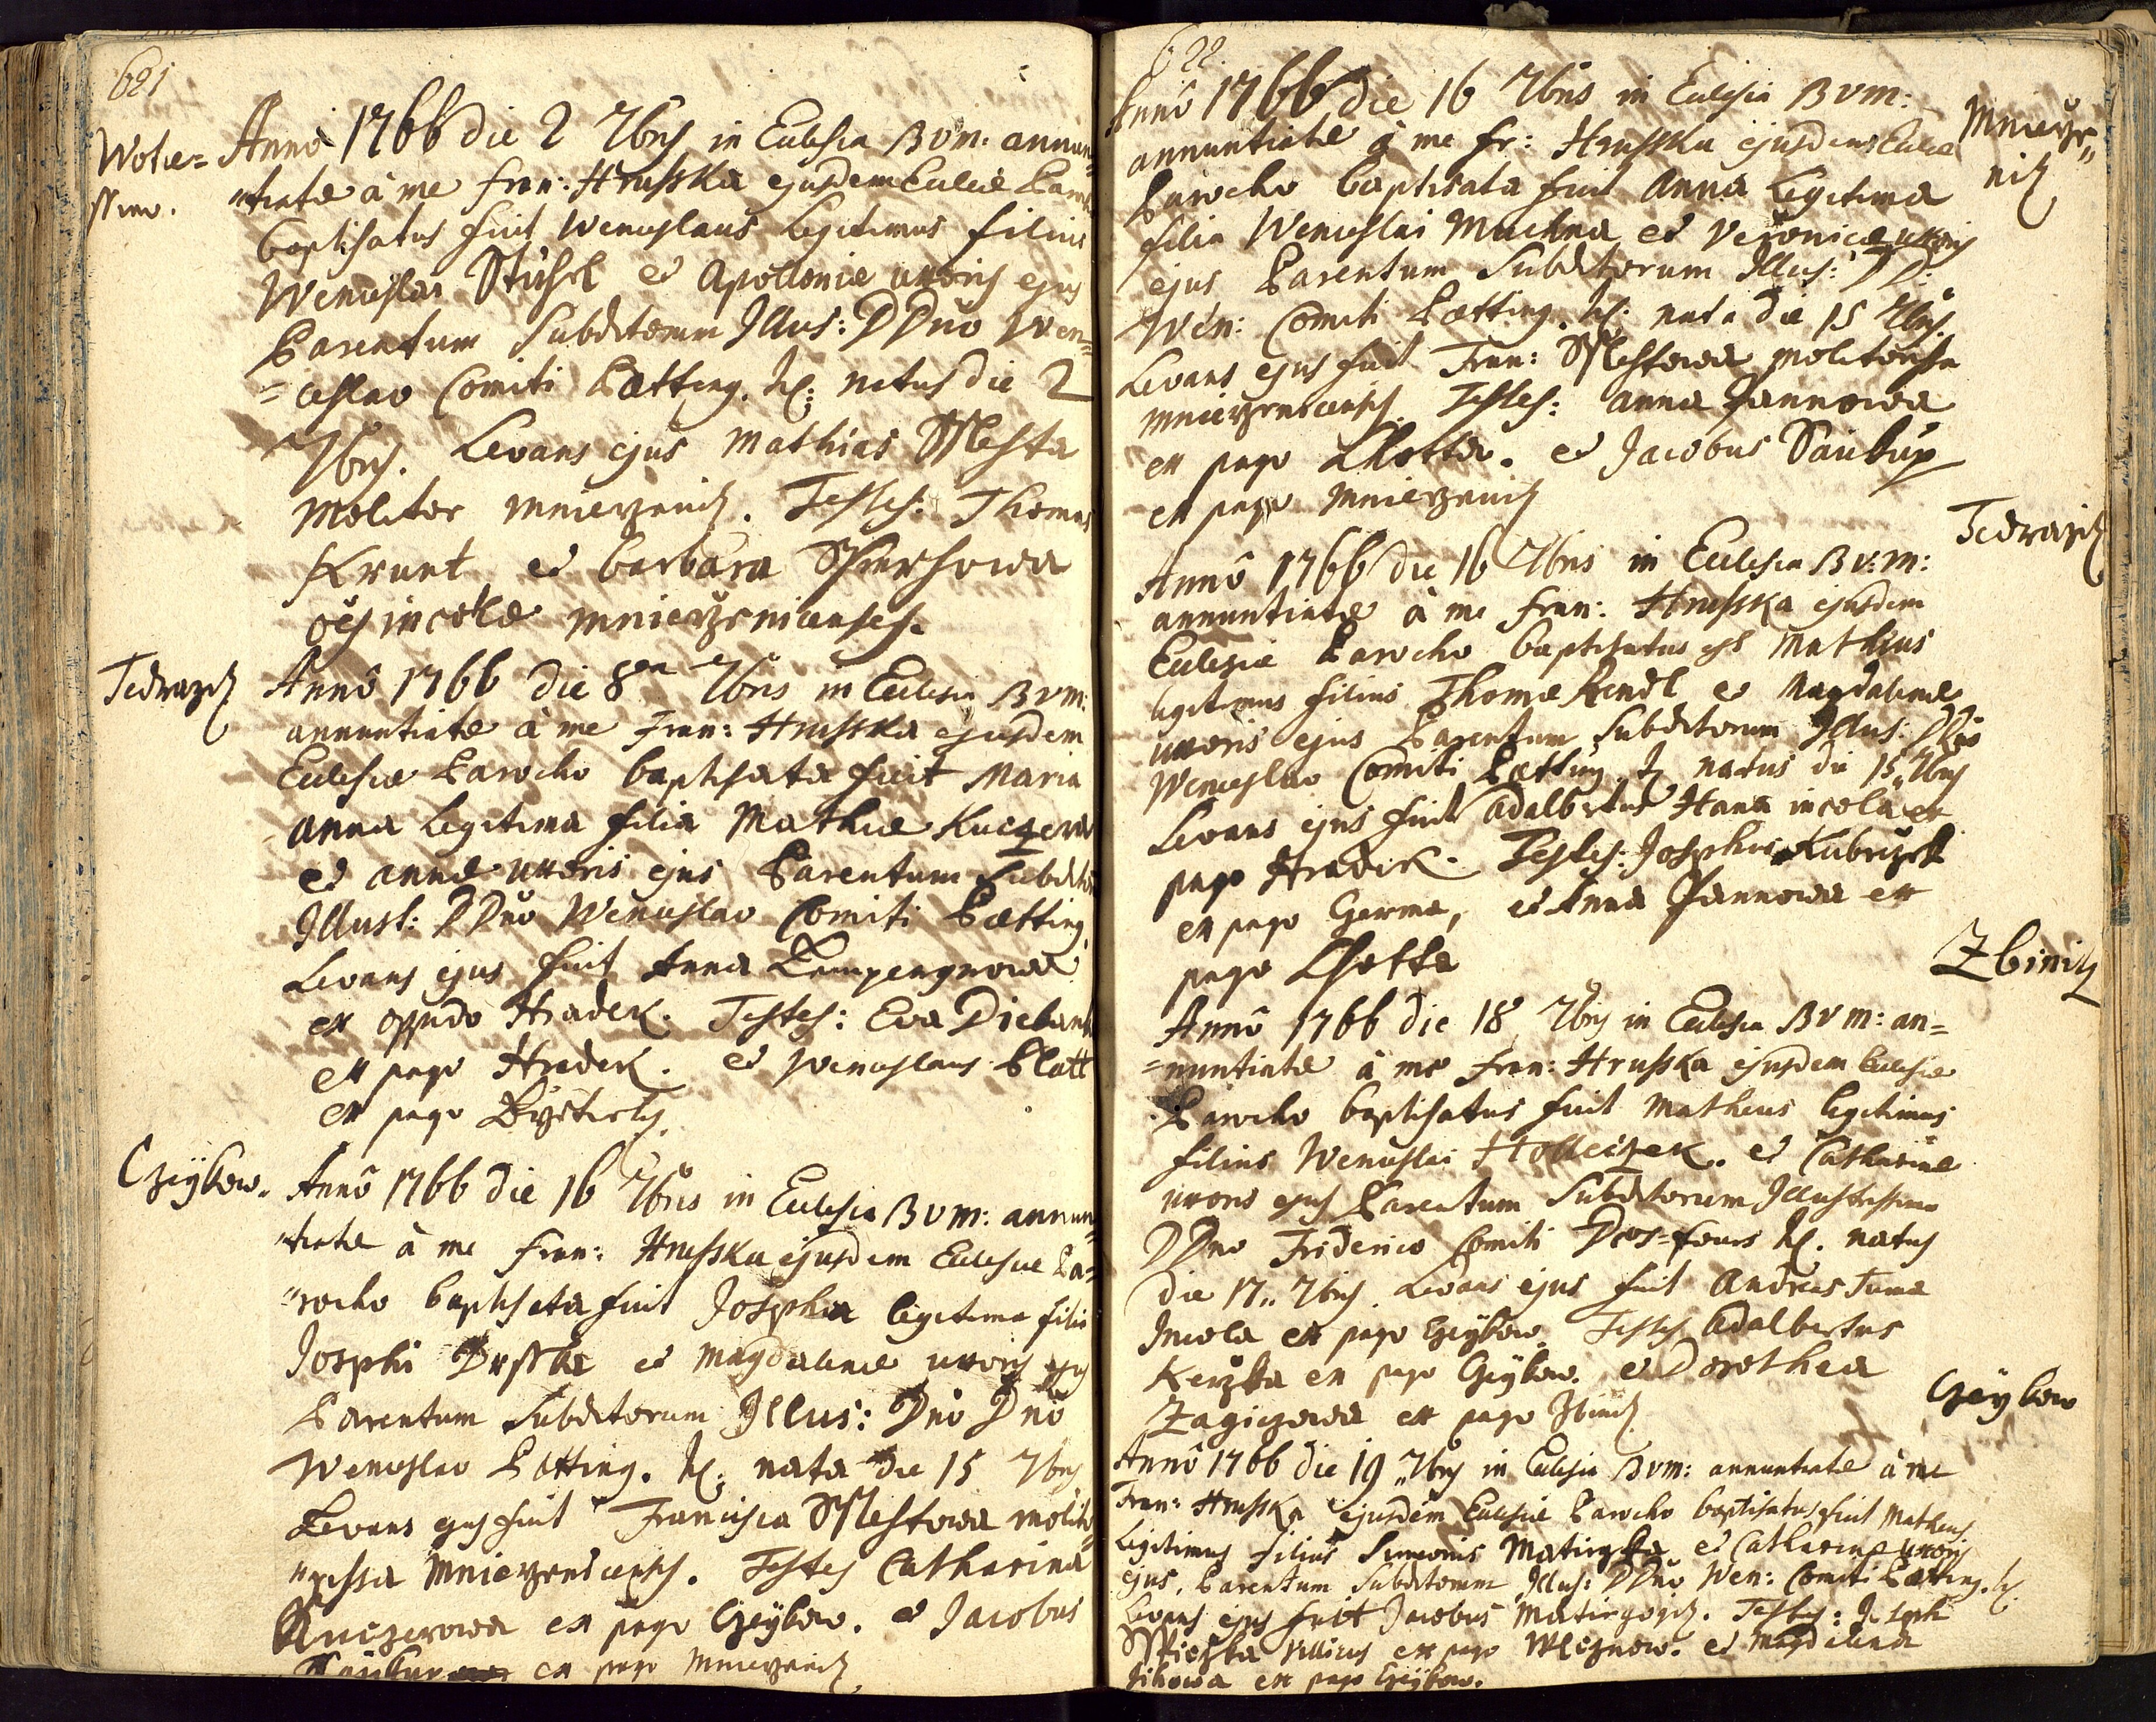 621
Wotie=
ssino.
Annô 1766 die 2 7bris in Eccl[esi]a BVM: annun=
"tiatae à me Fran: Hrusska ejusdem Eccl[esi]ae Paro
baptisatus fuit Wenceslaus legitimus filius
Wenceslai et Apolloniae uxoris ejus
Parentum Subditorum Illus: DDno Wen=
=ceslao Comiti Pætting. natus die 2
7bris. Levans ejus Mathias Mesta
Molitor Mnieržnicz. Testes: Thomas
Krunt et Barbara
incolae
Tedrazicz
Annô 1766 die 8va 7bris in Ecclesia BVM:
annuntiatae à me Fran: Hrusska ejusdem
Ecclesiae Parocho baptisata fuit Maria
Anna Legitima filia Mathiae Kuczera
et Annae uxoris ejus Parentum Subdito
Illust: DDno Wenceslao Comiti Pætting.
Levans ejus fuit Anna
ex oppido Hradek. Testes: Eva
ex pago Hradek. et Wenceslaus Platt
ex pago
Czeÿkow.
Annô 1766 die 16 7bris in Ecclesia BVM: annun=
"tiatae à me Fran: Hrusska ejusdem Ecclesiae Pa=
"rocho baptisata fuit Josepha legitima filia
Josephi et Magdalenae uxoris ejus
Parentum Subditorum Illus: Dno Dno
Wenceslao Pætting. nata die 15 7bris
Levans ejus fuit Francisca Mestowa molito
Testes Catharina
Kuczerowa ex pago Czeÿkow. et Jacobus
ex pago Mnieržnicz
622
Mnieržs=
nicz
Annô 1766 die 16 7bris in Ecclesia BVM:
annuntiatae à me Fr: Hrusska ejusdem Eccl[esi]ae
Parocho baptisata fuit Anna Legitima
filia Wenceslai Machna et Veronicae uxoris
ejus Parentum Subditorum Illus: DD:
Wen: Comiti Pætting. nata die 15 7bris.
Levans ejus fuit Fran: Mestowa molitorissa
Testes: Anna Jannowa
ex pago Lhotta. et Jacobus Saukup
ex pago Mnieržnicz
Tedrazicz
Annô 1766 die 16 7bris in Ecclesia BV:M:
annuntiatae à me Fran: Hrusska ejusdem
Ecclesiae Parocho baptisatus est Mathaeus
legitimus filius Thomae Rendl et Magdalenae
uxoris ejus Parentum Subditorum Illus: DDno
Wenceslao Comiti Pætting natus die 15 7bris
Levans ejus fuit Adalbertus Hana incola ex
pago Hradek. Testes: Josephus
ex pago Czerma, et Anna Jannowa ex
pago Lhotta
Zbinicz
Annô 1766 die 18 7bris in Ecclesia BVM: an=
=nuntiatae à me Fran: Hrusska ejusdem Ecclesiae
Parocho baptisatus fuit Mathaeus legitimus
filius Wenceslai Holleczek. et Catharinae
uxoris ejus Parentum Subditorum Illustrissimo
DDno Friderico Comiti Des=fours natus
die 17 7bris. Levans ejus fuit Andreas Tuma
Incola ex pago Czeÿkow. Testes Adalbertus
ex pago Czeÿkow. et Dorothea
ex pago Zbinicz
Czeÿkow
Annô 1766 die 19 7bris in Ecclesia BVM: annuntiatae à me
Fran: Hrusska ejusdem Ecclesiae Parocho baptisatus fuit Mathaeus
Legitimus filius Simeonis et Catharinae uxoris
ejus. Parentum Subditorum Illus: DDno Wen: Comiti Pætting.
Levans ejus fuit Jacobus Testes: Joseph
villicus ex pago et Magdalena
ex pago Czeÿkow.